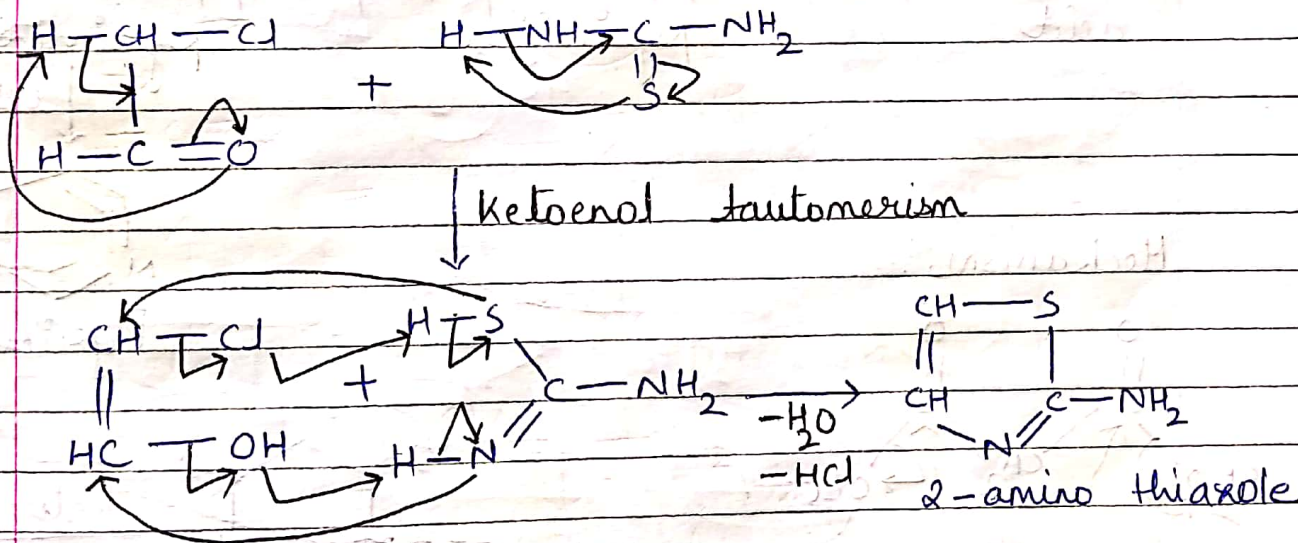 H — CH — Cl + H — NH — C — NH2
S
H — C = O
Ketoenol tautomerism
CH — Cl + H — S
C — NH2
HC — OH H — N
-H2O
-HCl
CH — S
CH C — NH2
N
2-amino thiazole